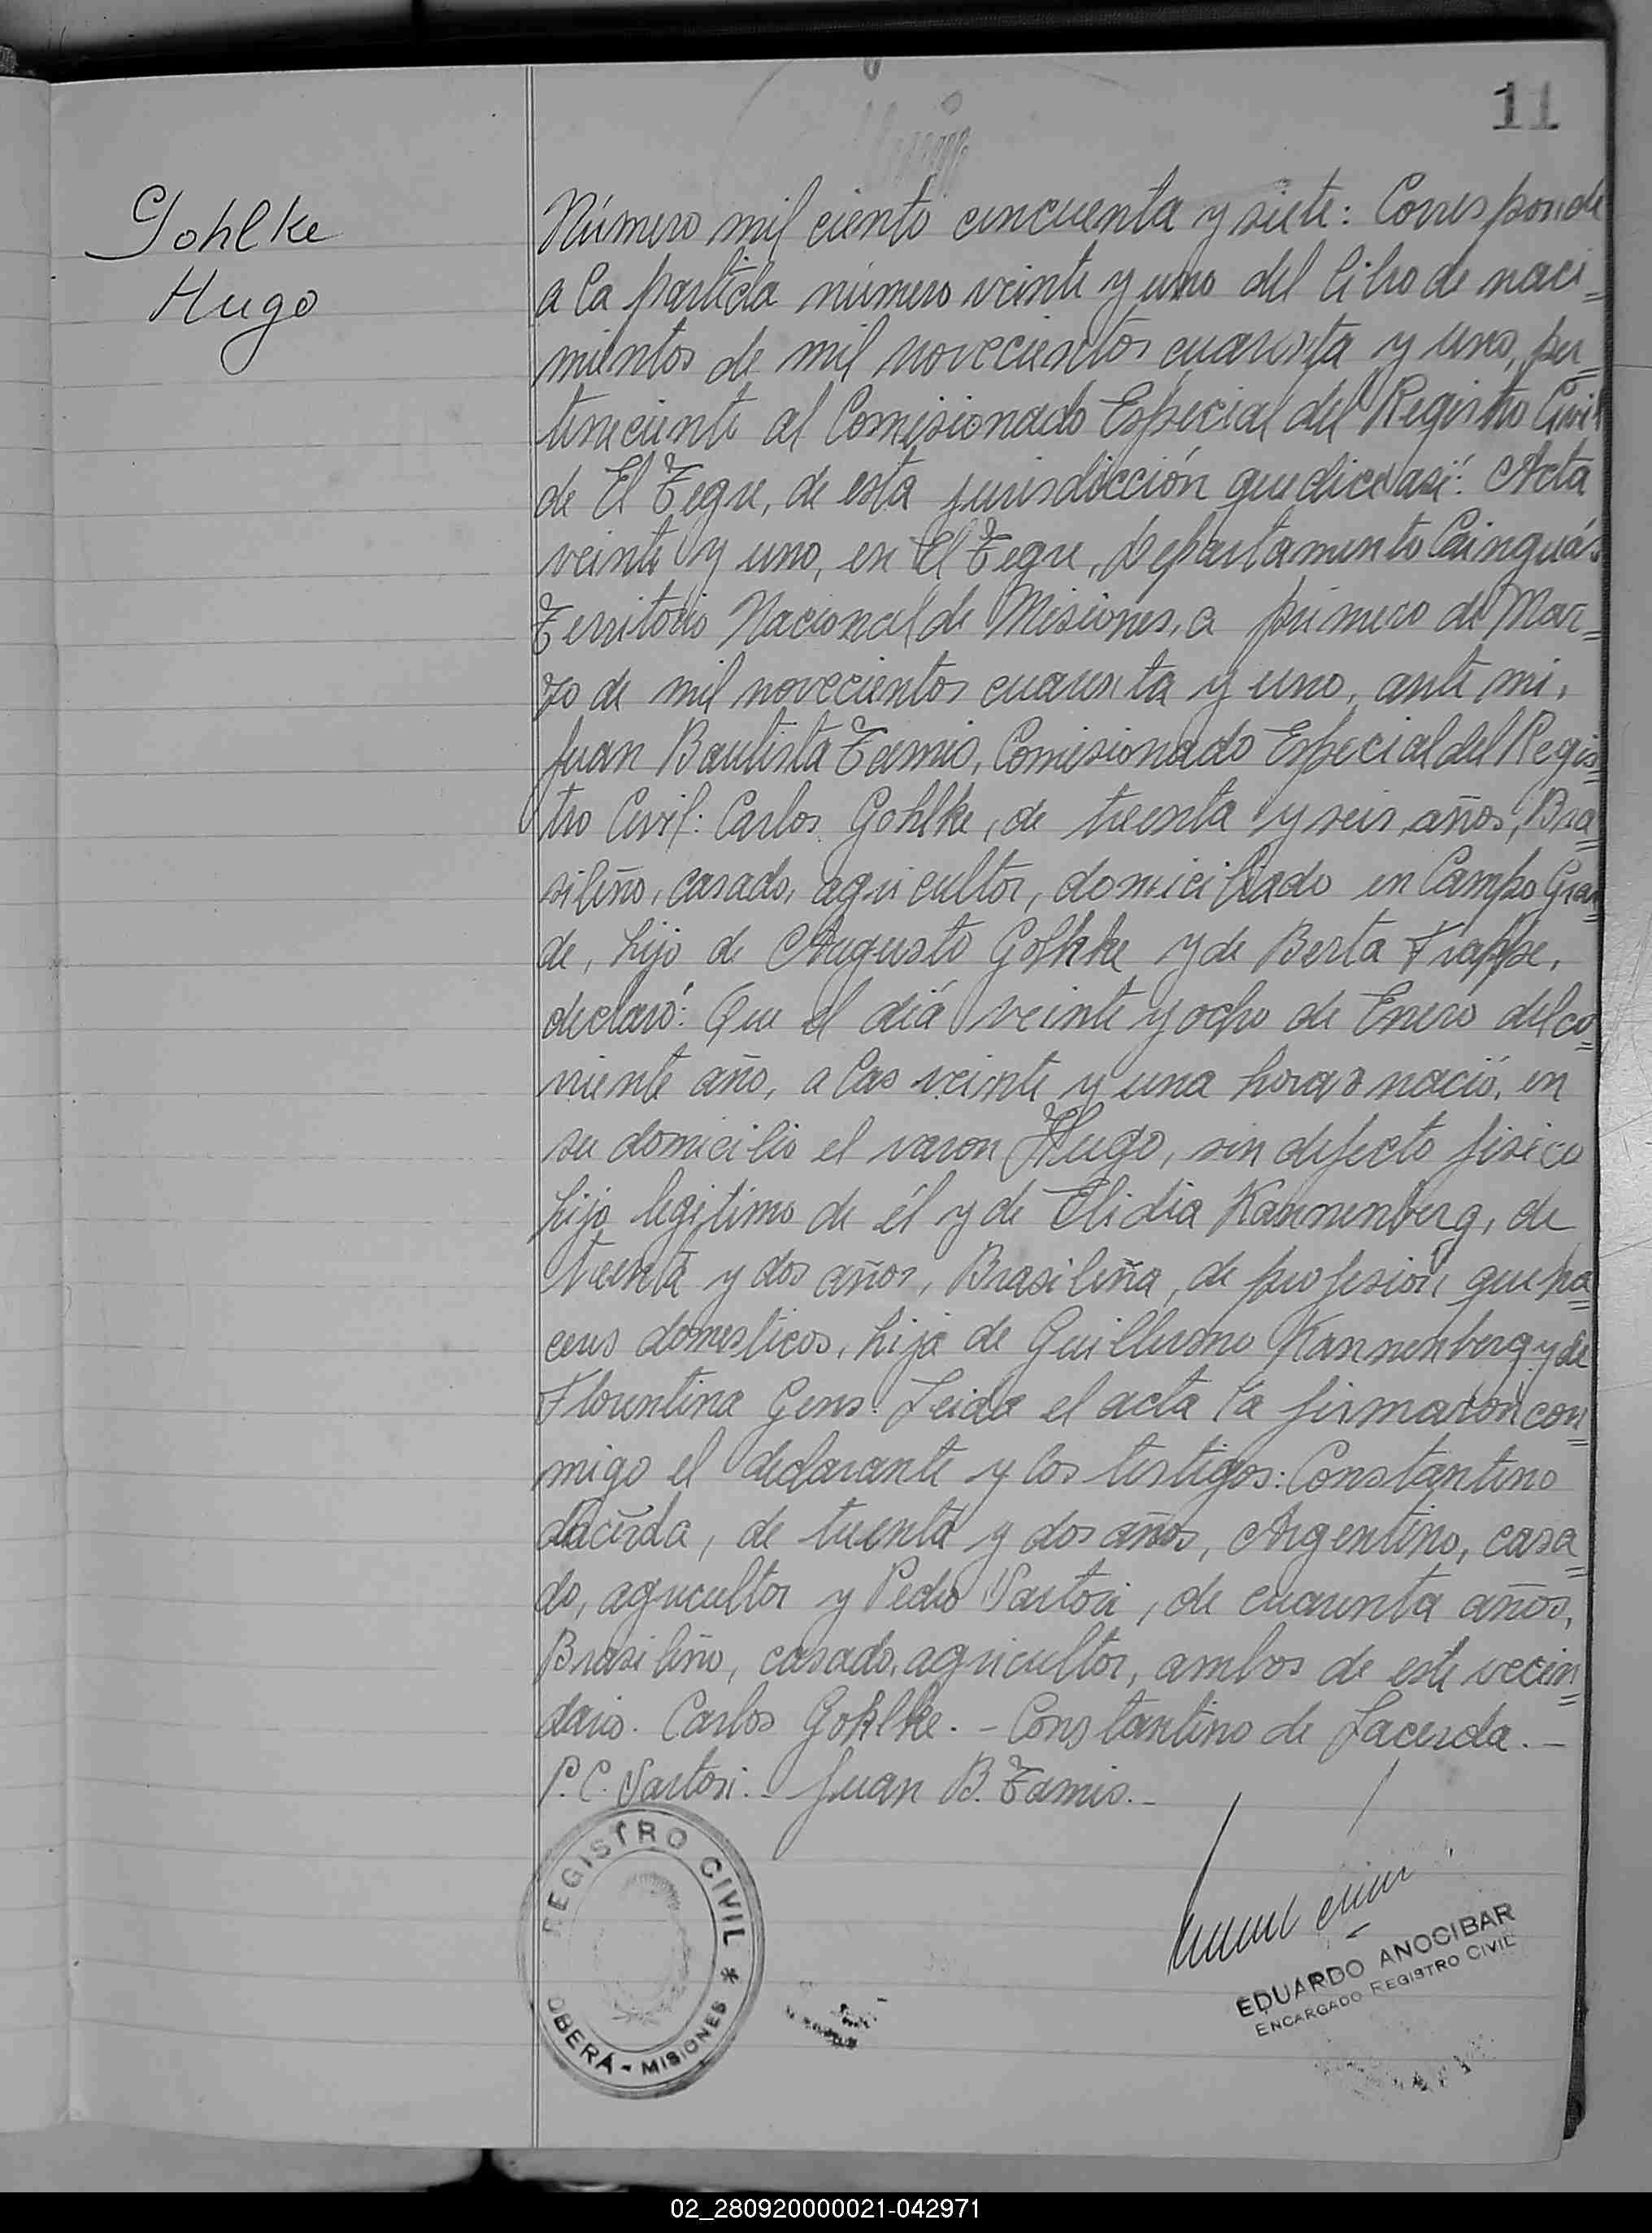 11
Gohlke
Hugo
Número mil ciento cincuenta y siete: Corresponde
a la partida número veinte y uno del libro de naci=
mientos de mil novecientos cuarenta y uno, per=
teneciente al Comisionado Especial del Registro Civil
de El Tegre, de esta jurisdicción que dice así: Acta
veinte y uno, en El Tegre, Departamento Cainguás
Territorio Nacional de Misiones, a primero de Mar=
zo de mil novecientos cuarenta y uno, ante mi,
Juan Bautista Tamis, Comisionado Especial del Regis=
tro Civil: Carlos Gohlke, de treenta y seis años, Bra=
sileño, casado, agricultor, domiciliado en Campo Gran=
de, hijo de Augusto Gohlke y de Berta Frappe,
declaró: Que el diá veinte y ocho de Enero del co=
rriente año, a las veinte y una horas nació, en
su domicilio el varon Hugo, sin defecto fisico
hijo legitimo de él y de Elidia Kannenberg, de
treenta y dos años, Brasileña, de profesión queha=
ceres domesticos, hija de Guillermo Kannenberg y de
Florentina Gens. Leida el acta la firmaron con=
migo el declarante y los testigos: Constantino
Lacerda, de treenta y dos años, Argentino, casa=
do, agricultor y Pedro Sartori, de cuarenta años,
Brasileño, casado, agricultor, ambos de este vecin=
dario. Carlos Gohlke. - Constantino de Lacerda. -
P. C. Sartori. - Juan B. Tamis. -
REGISTRO CIVIL *
OBERÁ - MISIONES
EDUARDO ANOCIBAR
ENCARGADO REGISTRO CIVIL
02_280920000021-042971